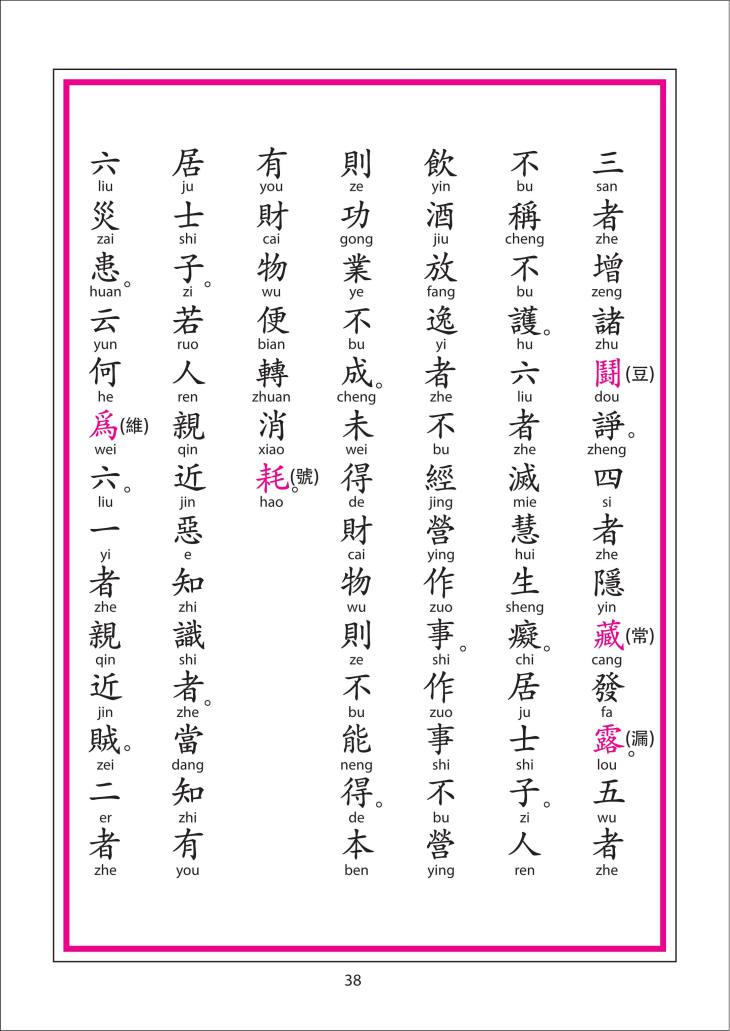 三者增諸鬪(豆)諍。四者隱藏(常)發露(漏)。五者
san zhe zeng zhu dou zheng si zhe yin cang fa lou wu zhe
不稱不護。六者滅慧生癡。居士子。人
bu cheng bu hu liu zhe mie hui sheng chi ju shi zi ren
飲酒放逸者不經營作事。作事不營
yin jiu fang yi zhe bu jing ying zuo shi zuo shi bu ying
則功業不成。未得財物則不能得。本
ze gong ye bu cheng wei de cai wu ze bu neng de ben
有財物便轉消耗(號)。
you cai wu bian zhuan xiao hao
居士子。若人親近惡知識者。當知有
ju shi zi ruo ren qin jin e zhi shi zhe dang zhi you
六災患。云何爲(維)六。一者親近賊。二者
liu zai huan yun he wei liu yi zhe qin jin zei er zhe
38